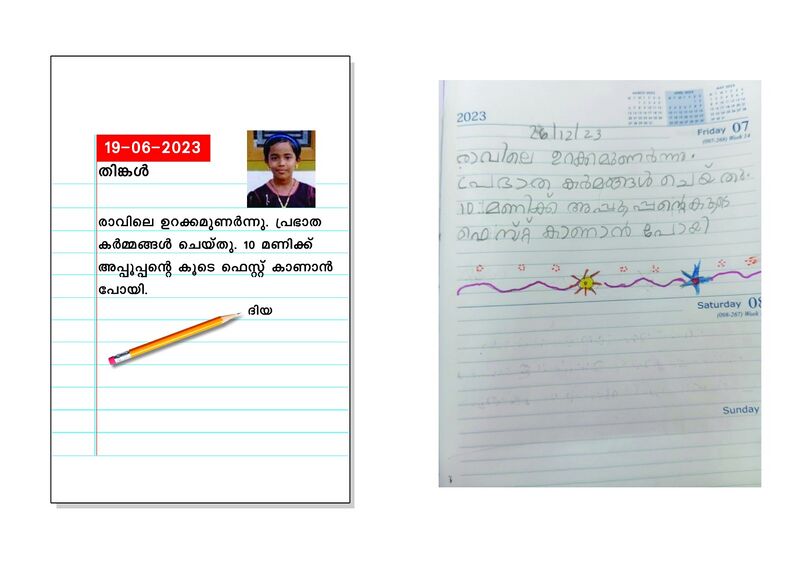 19-06-2023
തിങ്കൾ
രാവിലെ ഉറക്കമുണർന്നു. പ്രഭാത
കർമ്മങ്ങൾ ചെയ്തു. 10 മണിക്ക്
അപ്പൂപ്പന്റെ കൂടെ ഫെസ്റ്റ് കാണാൻ
പോയി.
ദിയ
2023
26/12/23
Friday 07
(097-268) Week 14
രാവിലെ ഉറക്കമുണർന്നു.
പ്രഭാത കർമങ്ങൾ ചെയ്തു.
10 മണിക്ക് അപ്പൂപ്പന്റെകൂടെ
ഫെസ്റ്റ് കാണാൻ പോയി
Saturday 08
(098-267) Week
Sunday